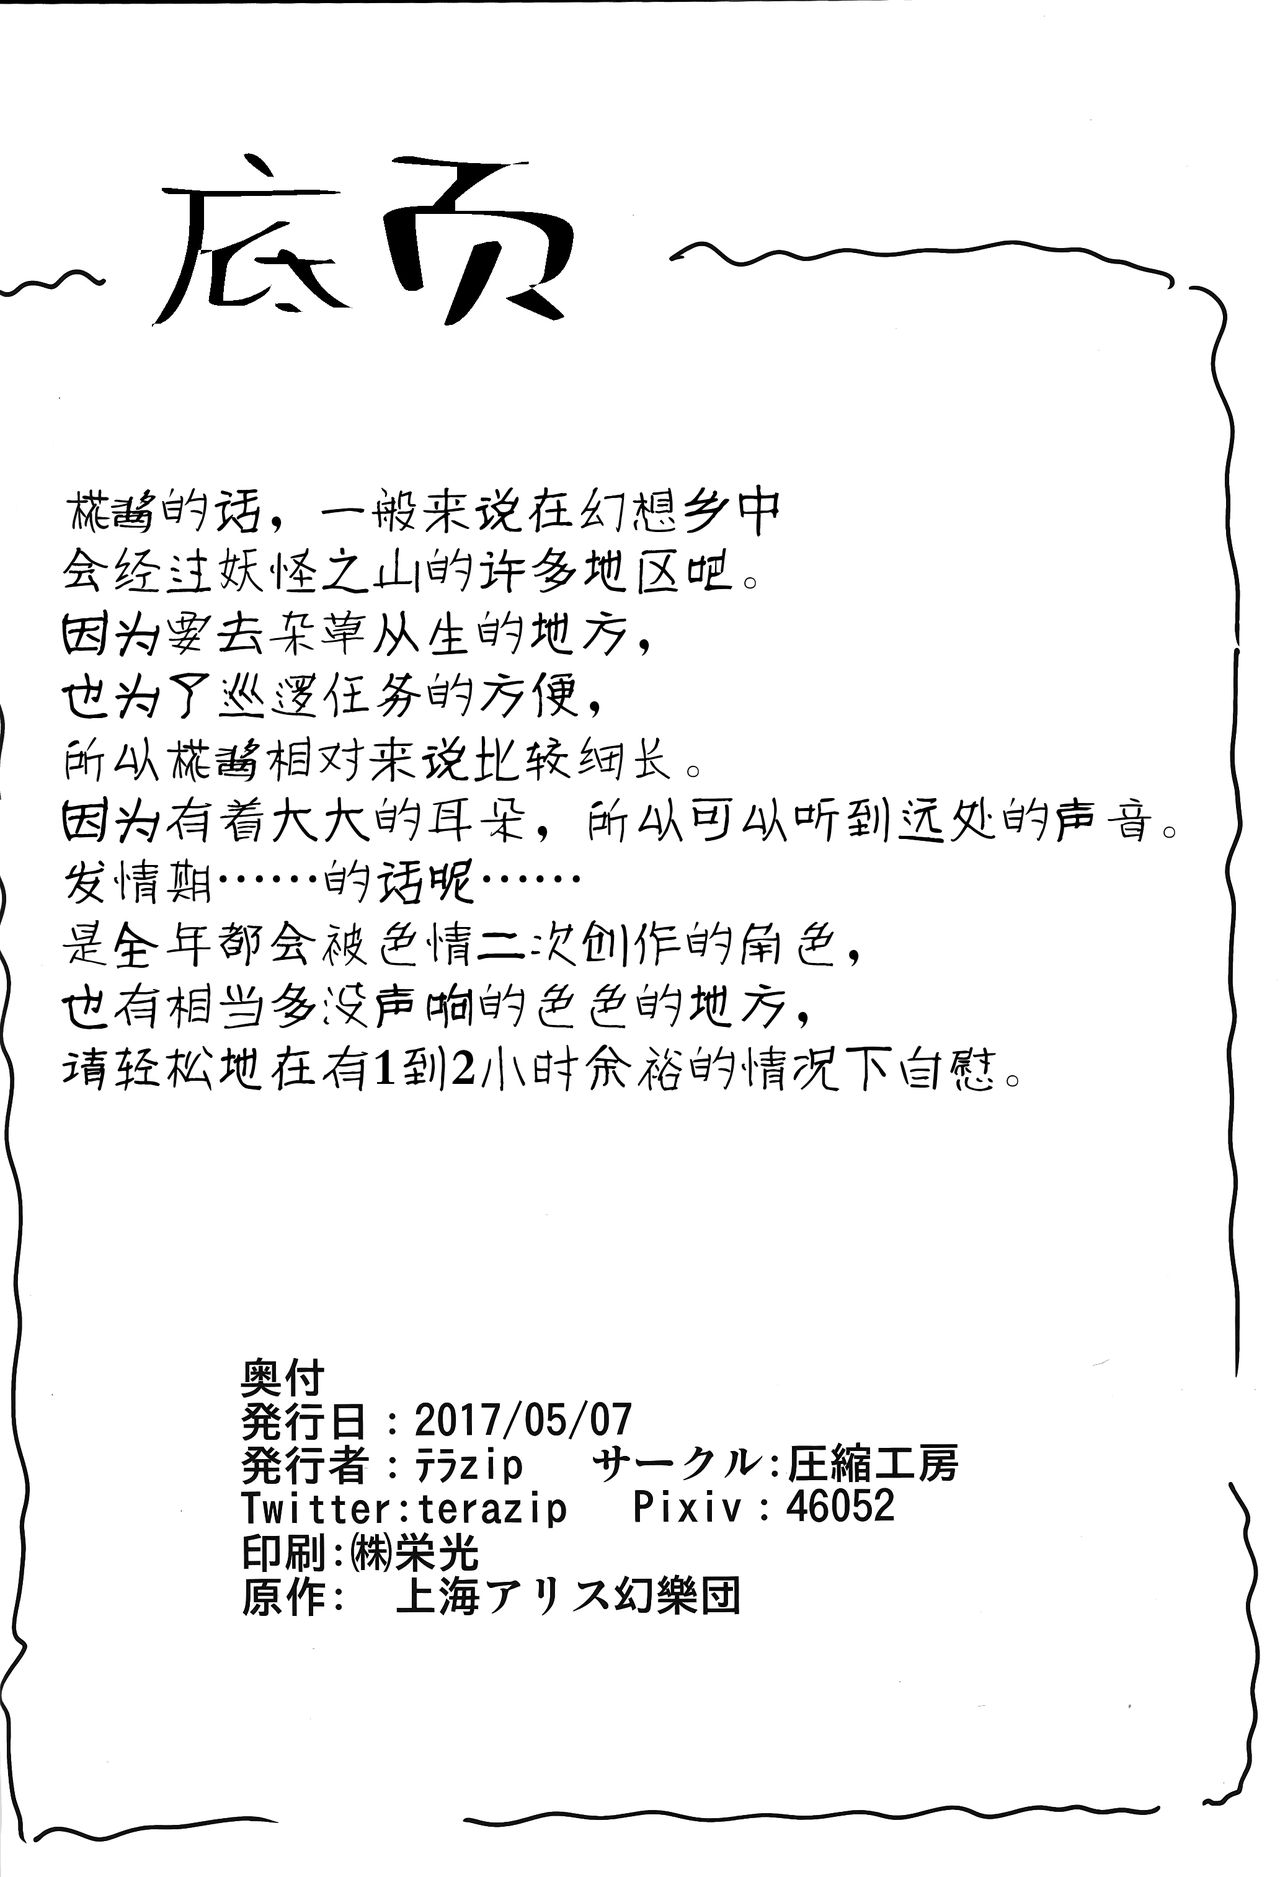 底页
椛酱的话，一般来说在幻想乡中
会经过妖怪之山的许多地区吧。
因为要去杂草丛生的地方，
也为了巡逻任务的方便，
所以椛酱相对来说比较细长。
因为有着大大的耳朵，所以可以听到远处的声音。
发情期……的话呢……
是全年都会被色情二次创作的角色，
也有相当多没声响的色色的地方，
请轻松地在有1到2小时余裕的情况下自慰。
奥付
発行日：2017/05/07
発行者：ﾃﾗzip　サークル:圧縮工房
Twitter:terazip　Pixiv：46052
印刷:㈱栄光
原作:　上海アリス幻樂団